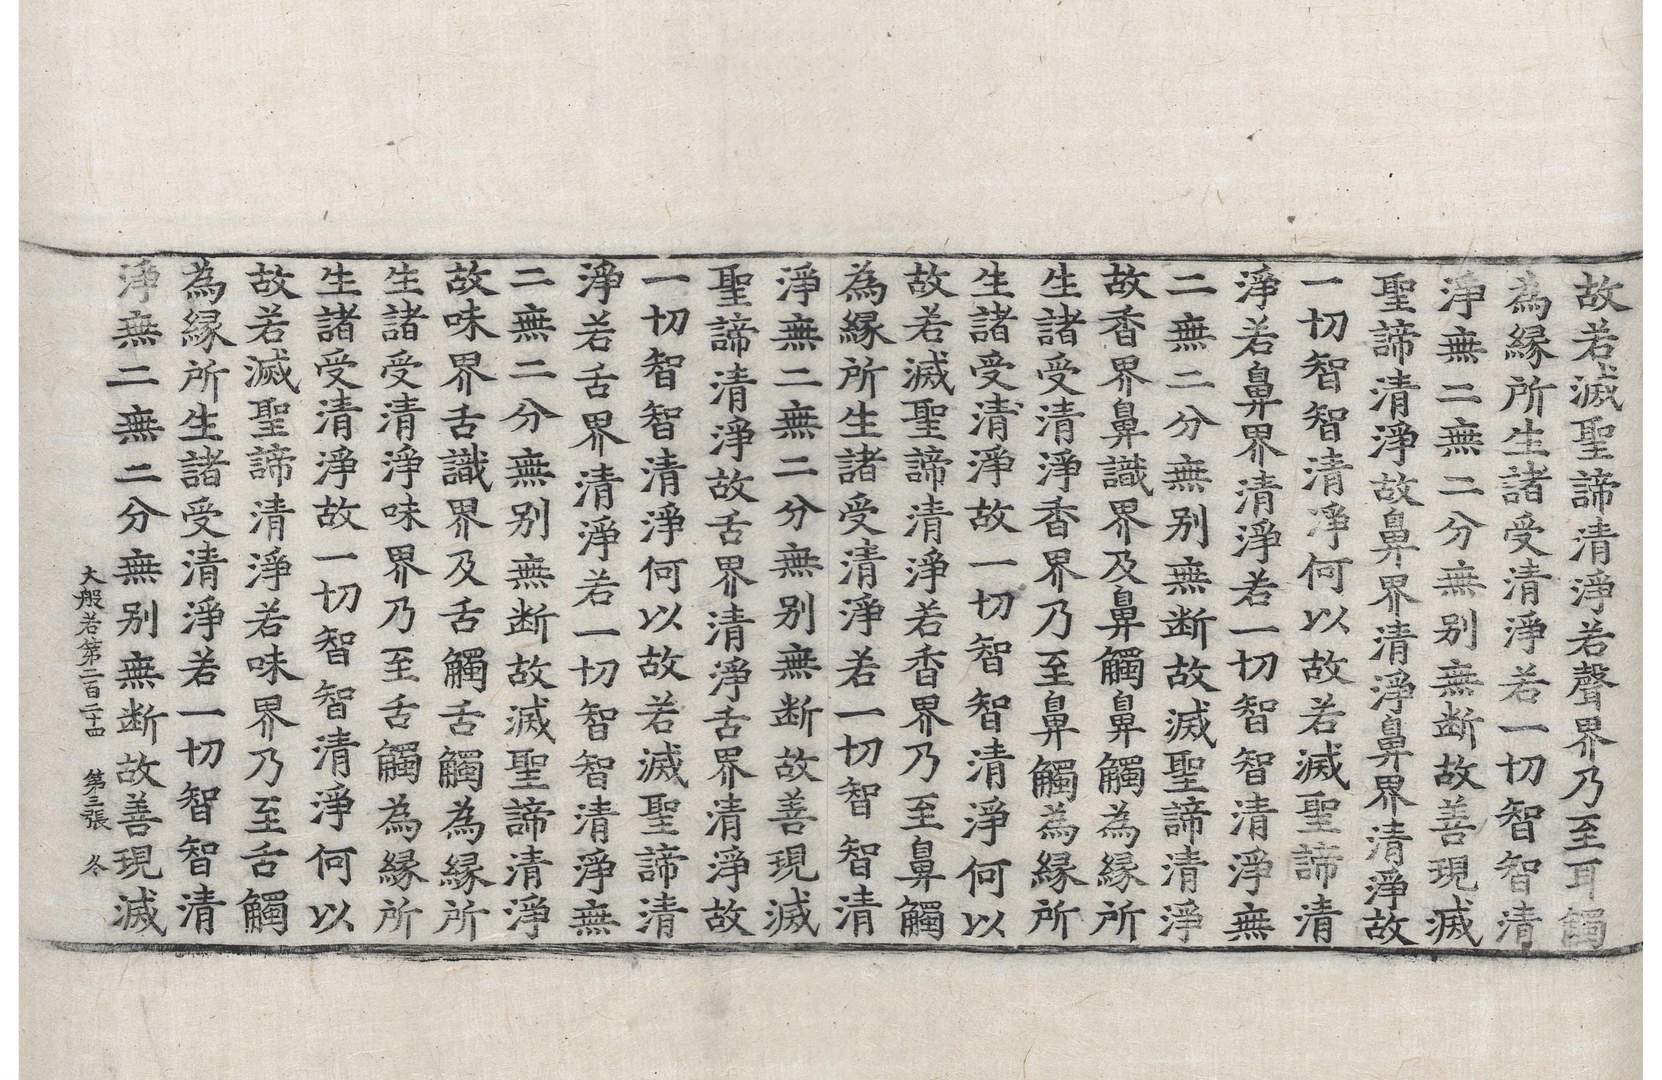 故若滅聖諦清淨若聲界乃至耳觸
為緣所生諸受清淨若一切智智清
淨無二無二分無別無断故善現滅
聖諦清淨故鼻界清淨鼻界清淨故
一切智智清淨何以故若滅聖諦清
淨若鼻界清淨若一切智智清淨無
二無二分無別無断故滅聖諦清淨
故香界鼻識界及鼻觸鼻觸為緣所
生諸受清淨香界乃至鼻觸為緣所
生諸受清淨故一切智智清淨何以
故若滅聖諦清淨若香界乃至鼻觸
為緣所生諸受清淨若一切智智清
淨無二無二分無別無断故善現滅
聖諦清淨故舌界清淨舌界清淨故
一切智智清淨何以故若滅聖諦清
淨若舌界清淨若一切智智清淨無
二無二分無別無断故滅聖諦清淨
故味界舌識界及舌觸舌觸為緣所
生諸受清淨味界乃至舌觸為緣所
生諸受清淨故一切智智清淨何以
故若滅聖諦清淨若味界乃至舌觸
為緣所生諸受清淨若一切智智清
淨無二無二分無別無断故善現滅
大般若第二百二十四 第三張 冬